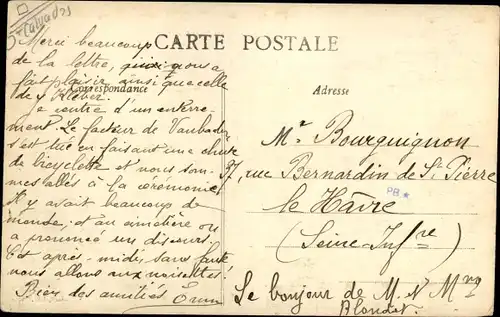 Calvados
CARTE POSTALE
Correspondance
Adresse
Merci beaucoup
de la lettre, qui nous a
fait plaisir ainsi que celle
de Kléber.
Je rentre d'un enterre-
ment. Le facteur de Vaubadon
s'est tué en faisant une chute
de bicyclette et nous som-
mes allés à la cérémonie.
Il y avait beaucoup de
monde, et au cimetière on
a prononcé un discours.
Cet après-midi, sans faute
nous allons aux noisettes!
Bien des amitiés
Mr Bourguignon
37, rue Bernardin de St Pierre
le Hâvre
(Seine-Infre)
PB
Le bonjour de M. et Mme
Blondet